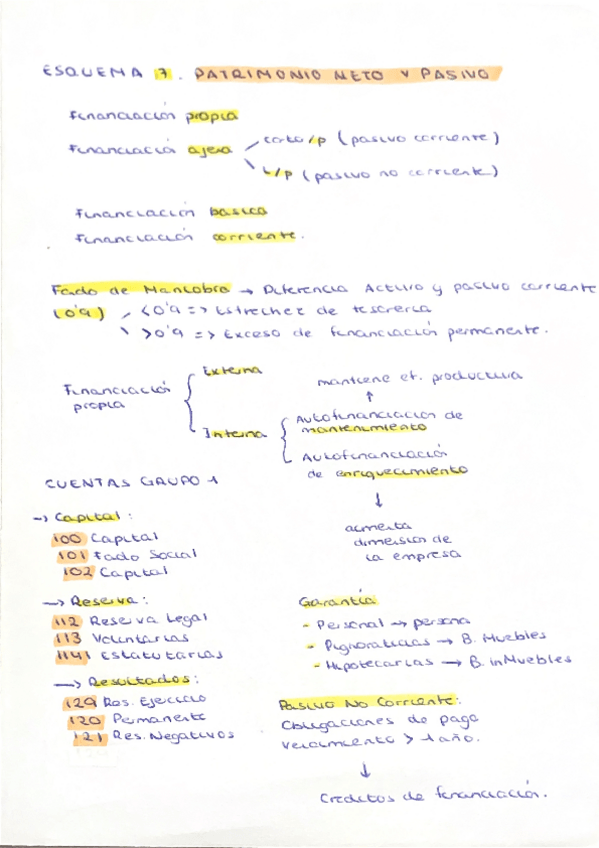 ESQUEMA 7. PATRIMONIO NETO Y PASIVO
Financiación propia
Financiació ajena
corto/p (pasivo corriente)
L/p (pasivo no corriente)
Financiación basica
Financiación corriente.
Fondo de Maniobra → Diferencia Activo y pasivo corriente
(0'9)
<0'9 => Estrechez de tesoreria
>0'9 => Exceso de financiación permanente.
Financiación propia
Externa
Interna
mantiene et. productiva
↑
Autofinanciación de
mantenimiento
Autofinanciación
de enriquecimiento
↓
aumenta
dimension de
la empresa
CUENTAS GRUPO 1
→ Capital:
100 Capital
101 Fodo Social
102 Capital
→ Reserva:
112 Reserva Legal
113 Voluntarias
1141 Estatutarias
→ Resultados:
129 Res. Ejercicio
120 Permanente
121 Res. Negativos
Garantía
- Personal → persona
- Pignoraticias → B. Muebles
- Hipotecarias → B. inMuebles
Pasivo No Corriente:
Obligaciones de pago
vencimiento > 1 año.
↓
Creditos de financiación.